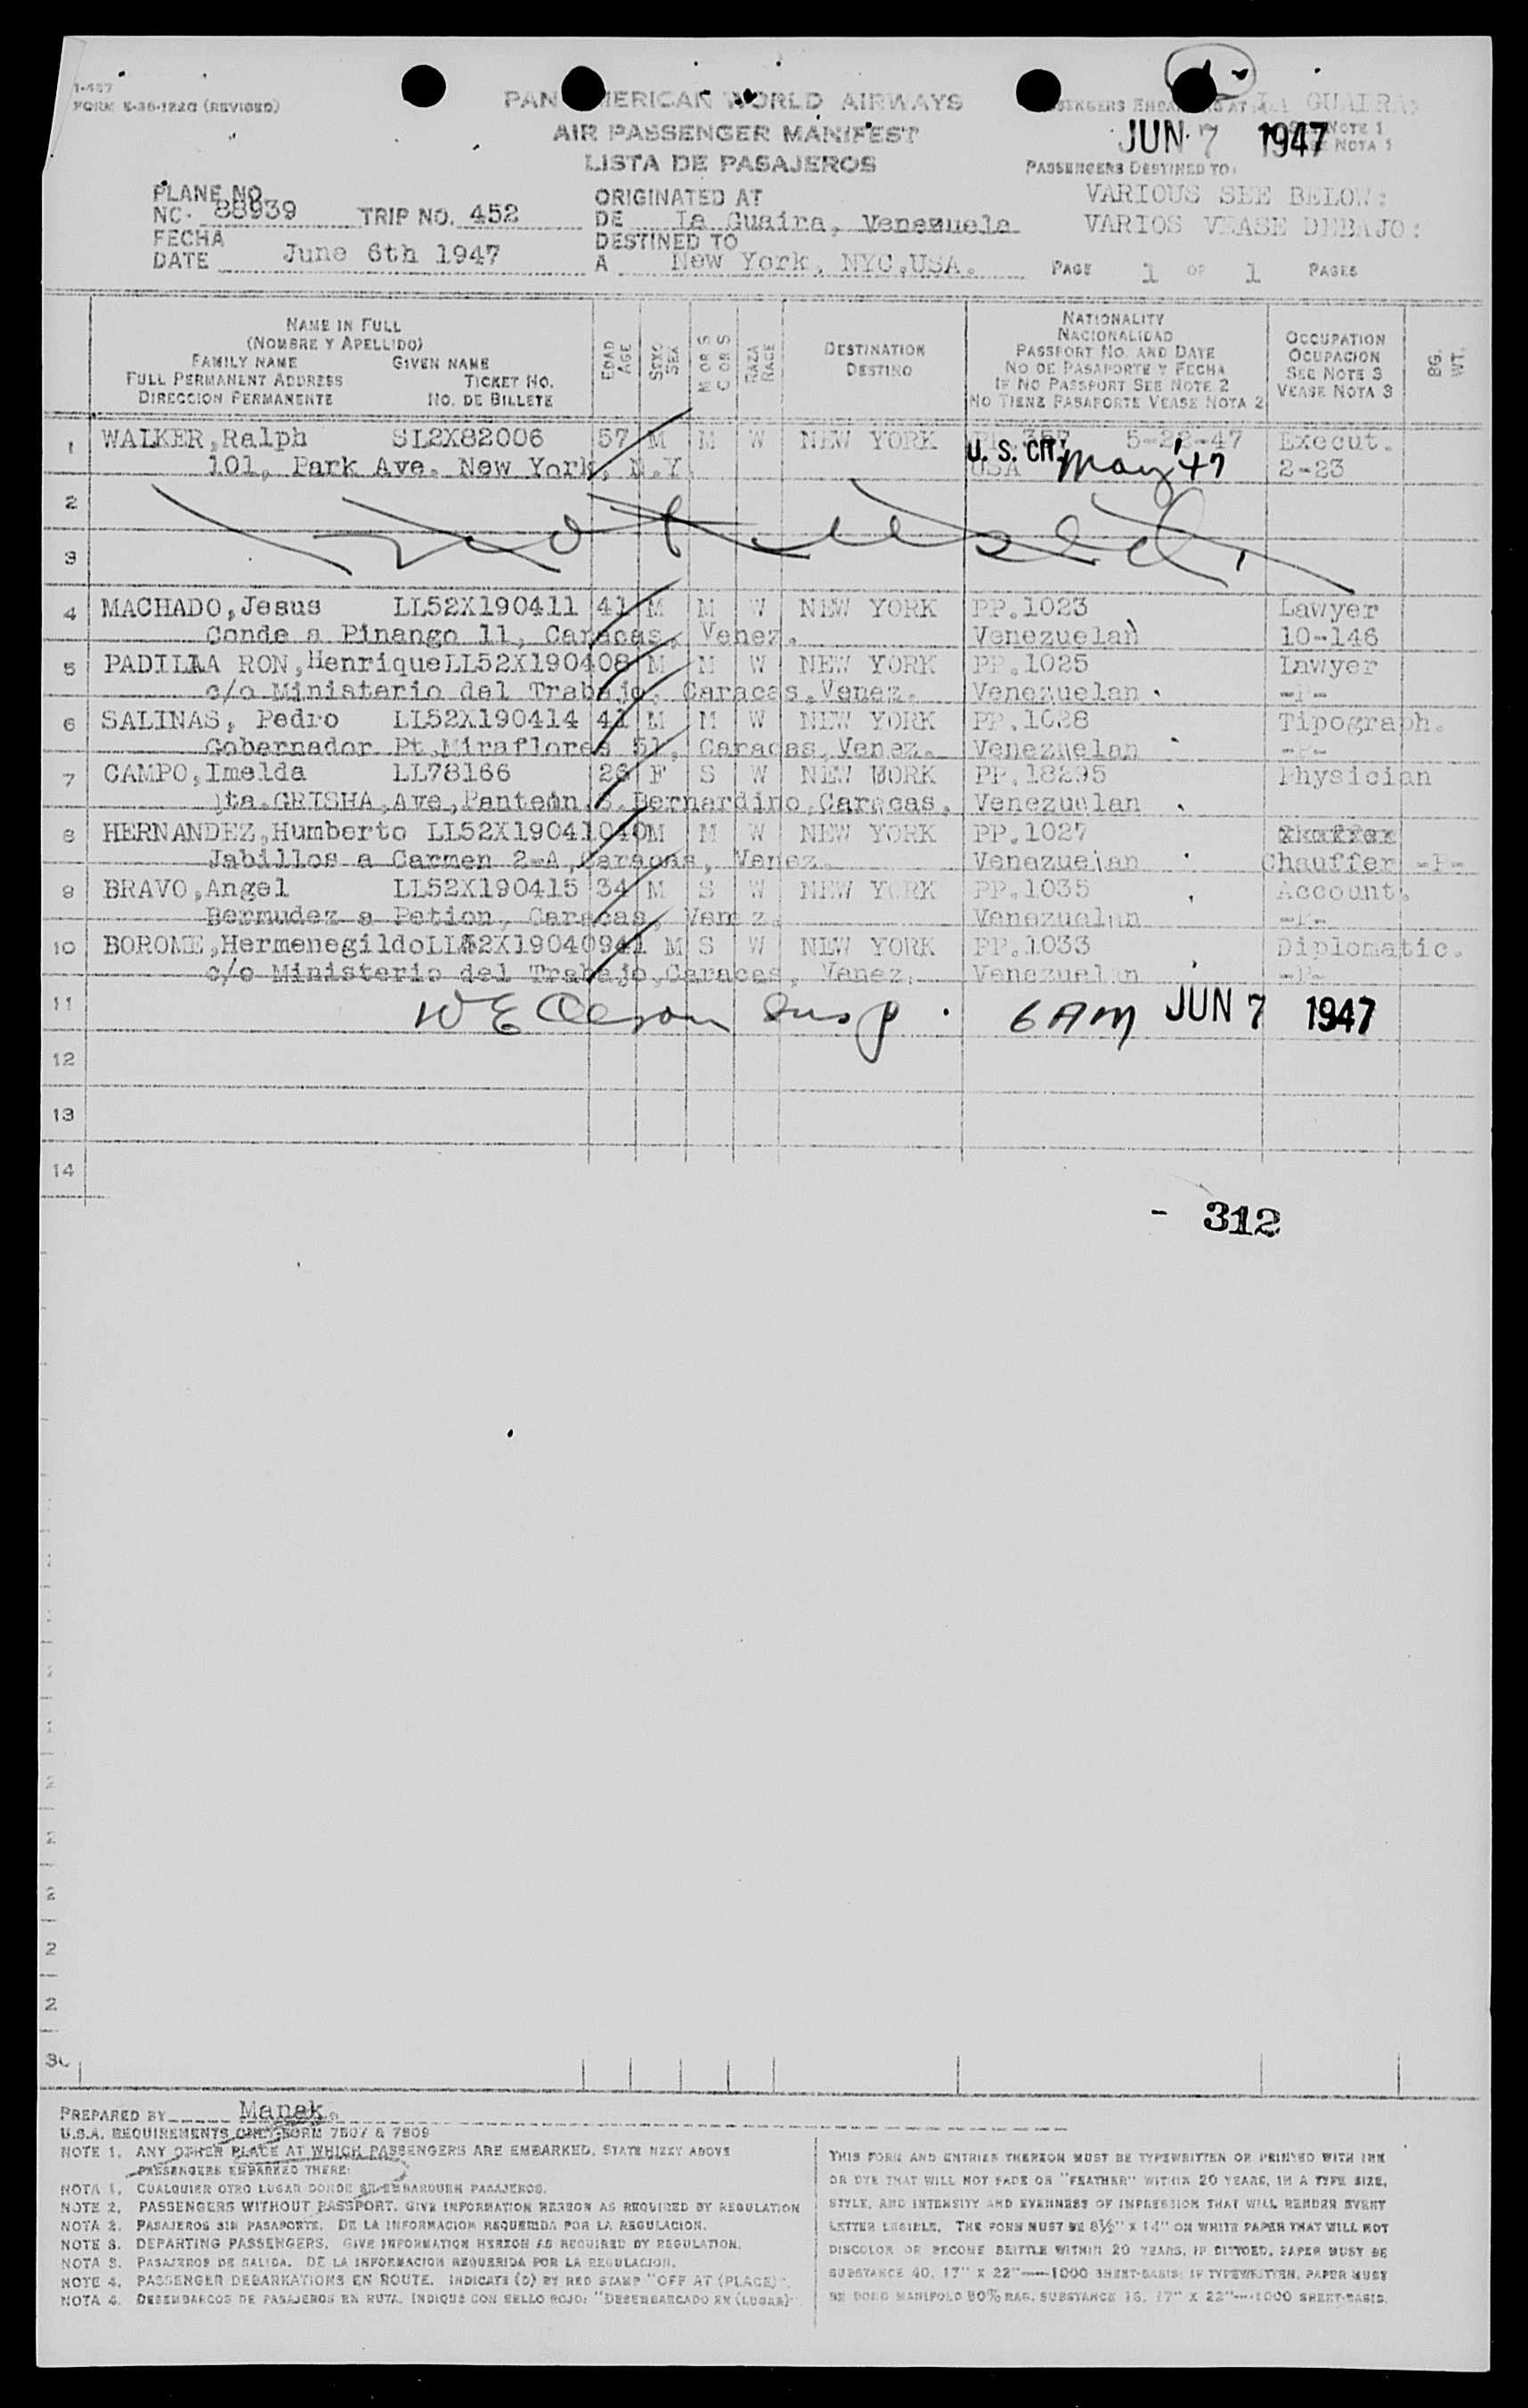 1-457
FORM E-36-122G (REVISED)
PAN AMERICAN WORLD AIRWAYS
AIR PASSENGER MANIFEST
LISTA DE PASAJEROS
PASSENGERS EMBARKING AT LA GUAIRA
JUN 7 1947
NOTE 1
NOTA 1
PASSENGERS DESTINED TO:
VARIOUS SEE BELOW:
VARIOS VEASE DEBAJO:
PLANE NO.
NC. 88939 TRIP NO. 452
FECHA
DATE June 6th 1947
ORIGINATED AT
DE La Guaira, Venezuela
DESTINED TO
A New York, NYC,USA.
PAGE 1 OF 1 PAGES
NAME IN FULL
(NOMBRE Y APELLIDO)
FAMILY NAME GIVEN NAME
FULL PERMANENT ADDRESS TICKET NO.
DIRECCION PERMANENTE NO. DE BILLETE
EDAD AGE
SEXO SEX
M OR S
C OR S
RAZA RACE
DESTINATION
DESTINO
NATIONALITY
NACIONALIDAD
PASSPORT NO. AND DATE
NO DE PASAPORTE Y FECHA
IF NO PASSPORT SEE NOTE 2
NO TIENE PASAPORTE VEASE NOTA 2
OCCUPATION
OCUPACION
SEE NOTE 3
VEASE NOTA 3
BG. WT.
1 WALKER,Ralph SL2X82006 57 M M W NEW YORK 357 5-22-47 Execut.
101, Park Ave. New York, N.Y. U. S. CIT. USA May '47 2-23
2
Not Used
3
4 MACHADO,Jesus LL52X190411 41 M M W NEW YORK PP.1023 Lawyer
Conde a Pinango 11, Caracas, Venez. Venezuelan 10-146
5 PADILLA RON,Henrique LL52X190408 M M W NEW YORK PP.1025 Lawyer
c/o Ministerio del Trabajo, Caracas,Venez. Venezuelan -P-
6 SALINAS, Pedro LL52X190414 41 M M W NEW YORK PP.1028 Tipograph.
Gobernador Pt.Miraflores 51, Caracas,Venez. Venezuelan -P-
7 CAMPO,Imelda LL78166 26 F S W NEW WORK PP.18295 Physician
Qta.GRISHA,Ave,Panteon,S.Bernardino,Caracas, Venezuelan
8 HERNANDEZ,Humberto LL52X190410 40M M W NEW YORK PP.1027
Jabillos a Carmen 2-A,Caracas, Venez. Venezuelan Chauffer -P-
9 BRAVO,Angel LL52X190415 34 M S W NEW YORK PP.1035 Account.
Bermudez a Petion, Caracas, Venez. Venezuelan -P-
10 BOROME,Hermenegildo LL52X190409 41 M S W NEW YORK PP.1033 Diplomatic.
c/o Ministerio del Trabajo,Caracas, Venez. Venezuelan -P-
11 Insp. 6 AM JUN 7 1947
12
13
14
- 312
2
2
2
2
30
PREPARED BY Manek.
U.S.A. REQUIREMENTS ONLY-FORM 7507 & 7509
NOTE 1. ANY OTHER PLACE AT WHICH PASSENGERS ARE EMBARKED. STATE NEXT ABOVE
PASSENGERS EMBARKED THERE:
NOTA 1. CUALQUIER OTRO LUGAR DONDE SE EMBARQUEN PASAJEROS.
NOTE 2. PASSENGERS WITHOUT PASSPORT. GIVE INFORMATION HEREON AS REQUIRED BY REGULATION
NOTA 2. PASAJEROS SIN PASAPORTE. DE LA INFORMACION REQUERIDA POR LA REGULACION.
NOTE 3. DEPARTING PASSENGERS. GIVE INFORMATION HEREON AS REQUIRED BY REGULATION.
NOTA 3. PASAJEROS DE SALIDA. DE LA INFORMACION REQUERIDA POR LA REGULACION.
NOTE 4. PASSENGER DEBARKATIONS EN ROUTE. INDICATE (D) BY RED STAMP "OFF AT (PLACE)".
NOTA 4. DESEMBARCOS DE PASAJEROS EN RUTA. INDIQUE CON SELLO ROJO: "DESEMBARCADO EN (LUGAR)".
THIS FORM AND ENTRIES THEREON MUST BE TYPEWRITTEN OR PRINTED WITH INK
OR DYE THAT WILL NOT FADE OR "FEATHER" WITHIN 20 YEARS, IN A TYPE SIZE,
STYLE, AND INTENSITY AND EVENNESS OF IMPRESSION THAT WILL RENDER EVERY
LETTER LEGIBLE. THE FORM MUST BE 8½" X 14" ON WHITE PAPER THAT WILL NOT
DISCOLOR OR BECOME BRITTLE WITHIN 20 YEARS. IF DITTOED, PAPER MUST BE
SUBSTANCE 40, 17" X 22"—1000 SHEET-BASIS; IF TYPEWRITTEN, PAPER MUST
BE BOND MANIFOLD 50% RAG, SUBSTANCE 16, 17" X 22"—1000 SHEET-BASIS.